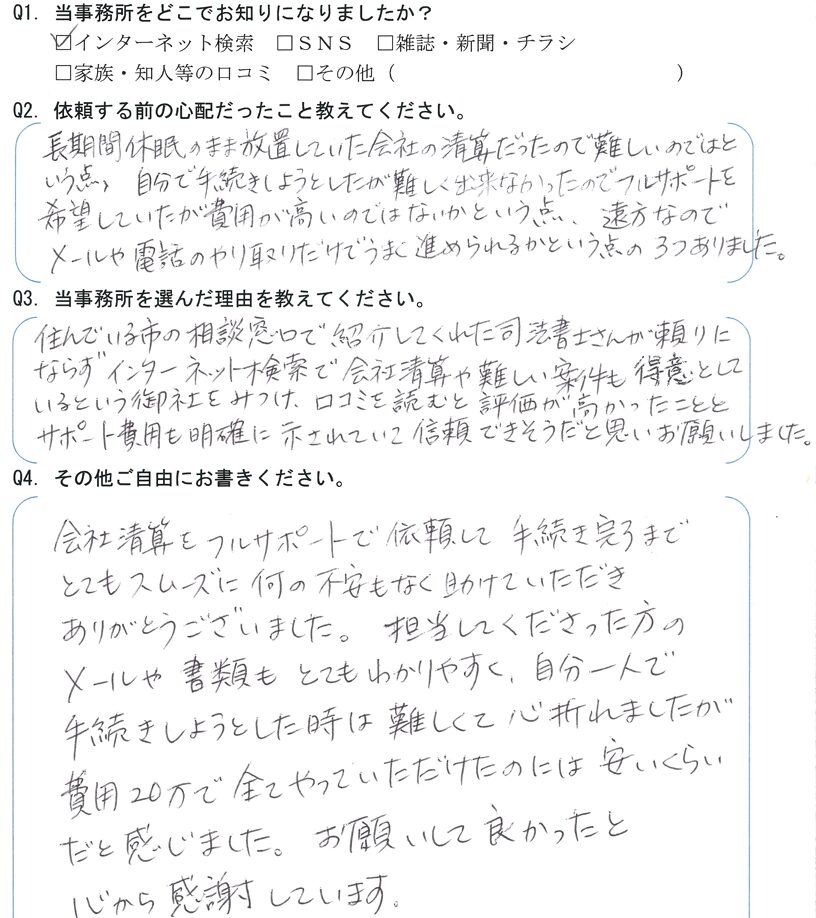 Q1. 当事務所をどこでお知りになりましたか？
☑インターネット検索　□ＳＮＳ　□雑誌・新聞・チラシ
□家族・知人等の口コミ　□その他（　　　　　　　　　　　　　　）
Q2. 依頼する前の心配だったこと教えてください。
長期間休眠のまま放置していた会社の清算だったので難しいのではと
いう点、自分で手続きしようとしたが難しく出来なかったのでフルサポートを
希望していたが費用が高いのではないかという点、遠方なので
メールや電話のやり取りだけでうまく進められるかという点の3つありました。
Q3. 当事務所を選んだ理由を教えてください。
住んでいる市の相談窓口で紹介してくれた司法書士さんが頼りに
ならずインターネット検索で会社清算や難しい案件も得意として
いるという御社をみつけ、口コミを読むと評価が高かったことと
サポート費用も明確に示されていて信頼できそうだと思いお願いしました。
Q4. その他ご自由にお書きください。
会社清算をフルサポートで依頼して手続き完了まで
とてもスムーズに何の不安もなく助けていただき
ありがとうございました。担当してくださった方の
メールや書類もとてもわかりやすく、自分一人で
手続きしようとした時は難しくて心折れましたが
費用20万で全てやっていただけたのには安いくらい
だと感じました。お願いして良かったと
心から感謝しています。